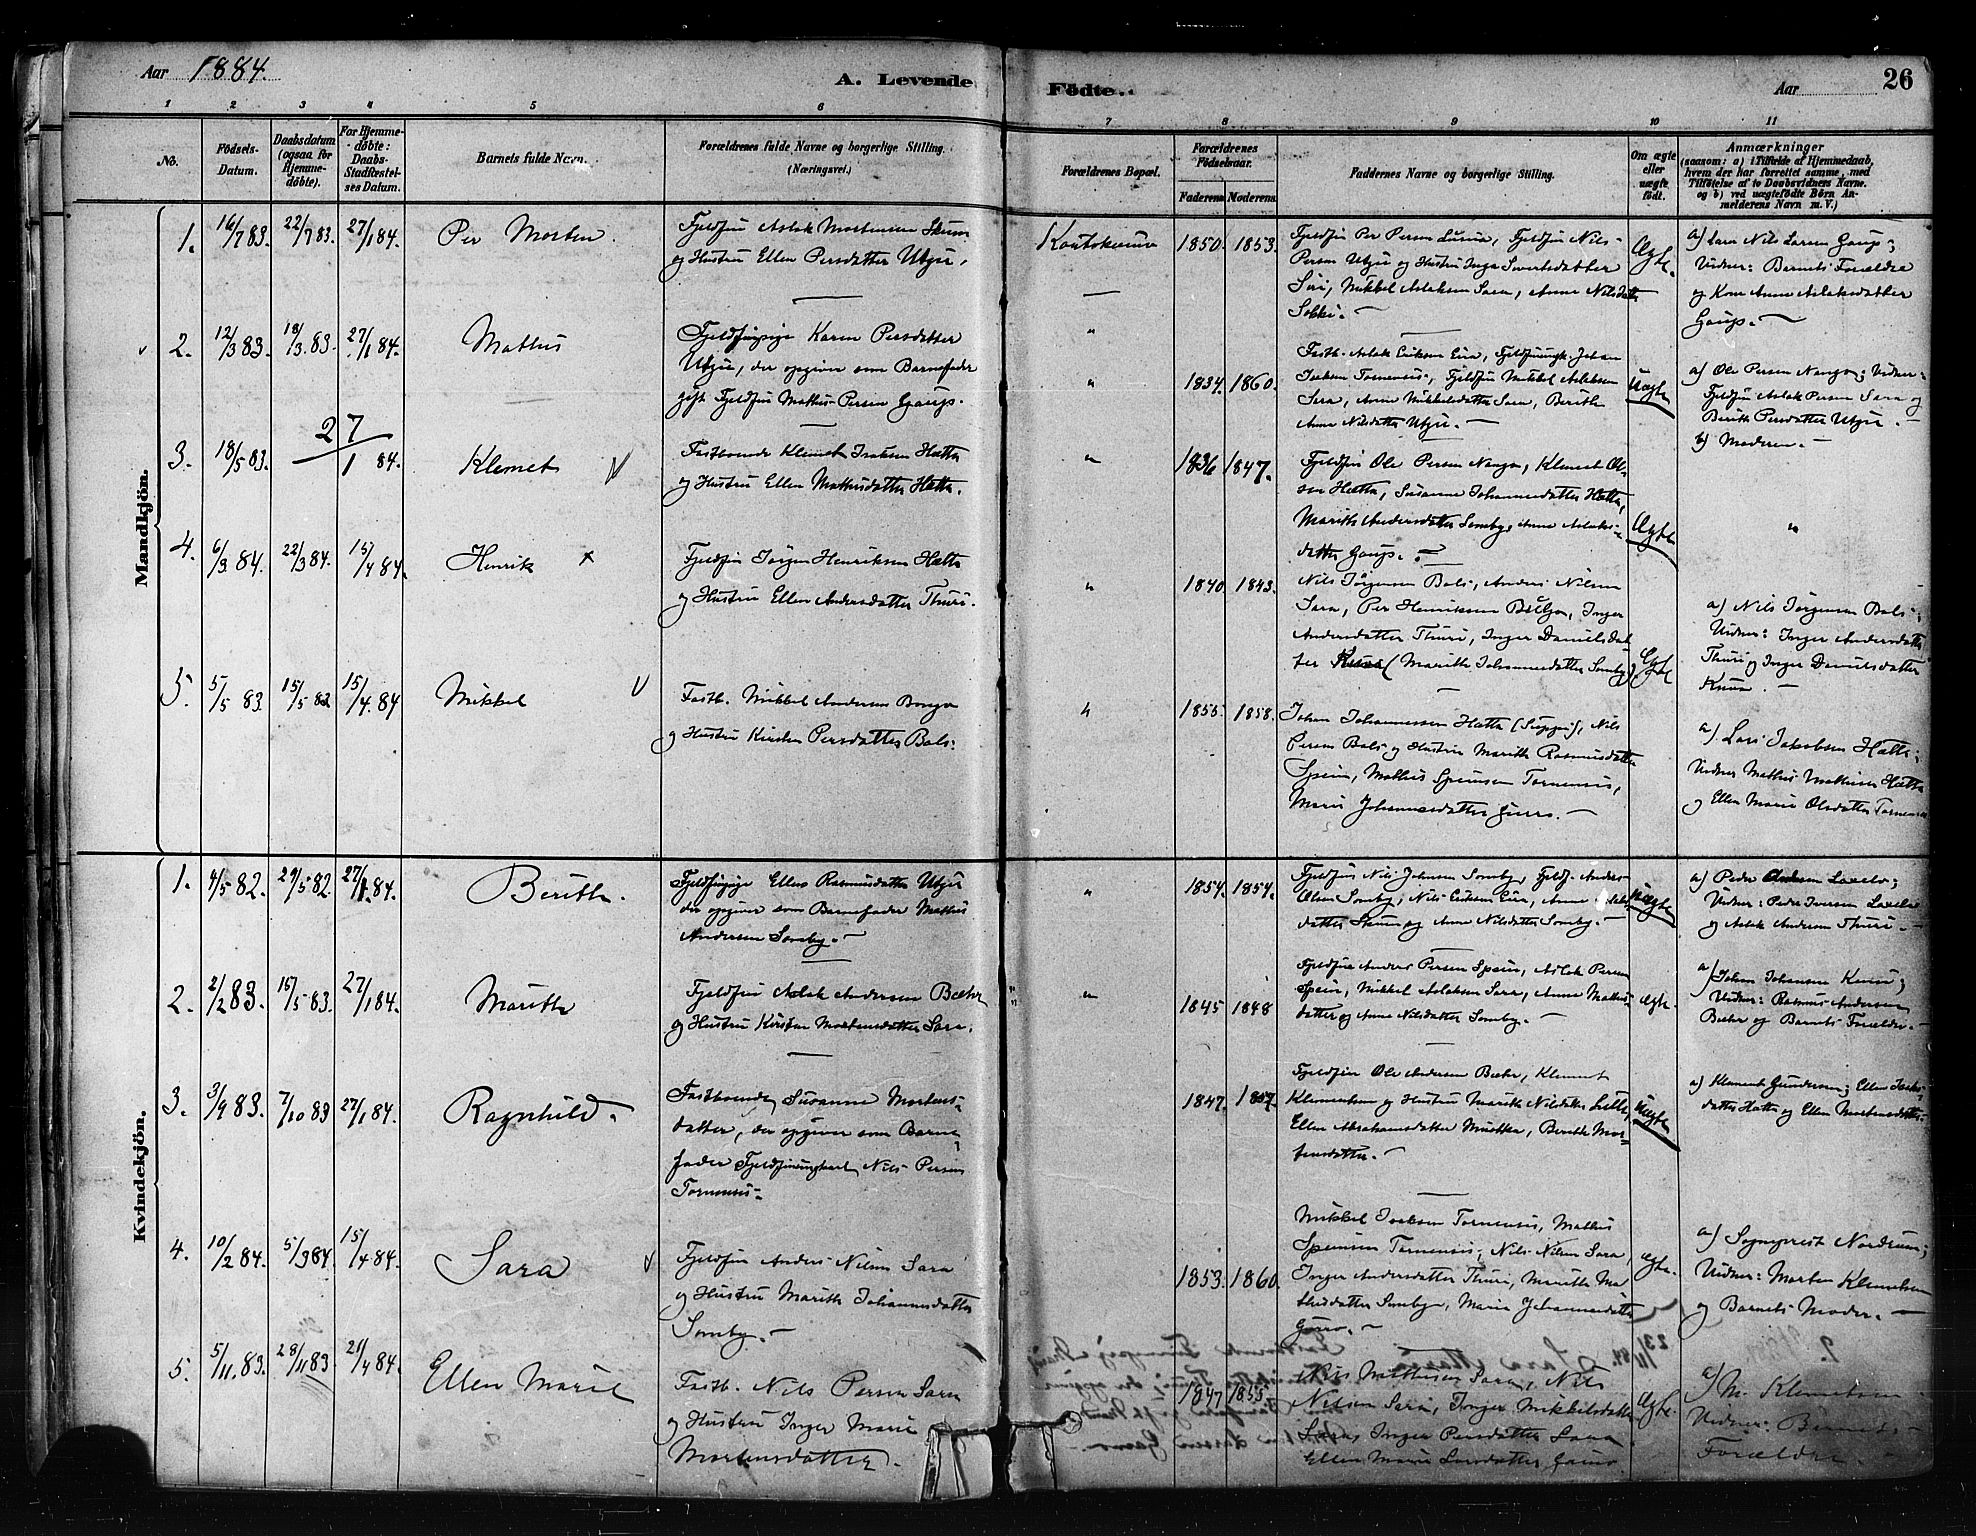 Aar 1884.
A. Levende Födte.
Aar 26
1 2 3 4 5 6 7 8 9 10 11
No.
Födsels-
Datum.
Daabsdatum
(ogsaa for
Hjemme-
döbte).
For Hjemme-
döbte:
Daabs-
Stadfæstel-
ses Datum.
Barnets fulde Navn.
Forældrenes fulde Navne og borgerlige Stilling.
(Næringsvei.)
Forældrenes Bopæl.
Forældrenes
Födselsaar.
Faderens Moderens
Faddernes Navne og borgerlige Stilling.
Om ægte
eller
uægte
födt.
Anmærkninger
(saasom: a) i Tilfælde af Hjemmedaab,
hvem der har forrettet samme, med
Tilföielse af to Daabsvidners Navne.
og b) ved uægtefödte Börn An-
melderens Navn m. V.)
Mandkjön.
1. 16/7 83. 22/7 83. 27/1 84. Per Morten.
Fjeldfin Aslak Mortensen Skum
og Hustru Ellen Persdatter Utsi.
Koutokeino 1850. 1853.
Fjeldfin Per Persen Lusua, Fjeldfin Nils
Persen Utsi og Hustru Inga Sivertsdatter
Siri, Mikkel Aslaksen Sara, Anne Nilsdatter
Sokki.
Ægte.
a) Lars Nils Larsen Gaup;
Vidner: Barnets Forældre
og Kone Anne Aslaksdatter
Gaup.
2. 12/3 83. 18/3 83. 27/1 84. Mathis
Fjeldfinpige Karen Persdatter
Utsi, der opgiver som Barnefader
gift Fjeldfin Mathis Persen Gaup.
" 1834. 1860.
Fastb. Aslak Eriksen Eira, Fjeldfinungk. Johan
Isaksen Tornensis, Fjeldfin Mikkel Aslaksen
Sara, Anne Mikkelsdatter Sara, Berith
Anne Nilsdatter Utsi.
Uægte
a) Ole Persen Nango; Vidner:
Fjeldfin Aslak Persen Sara og
Berith Persdatter Utsi.
b) Moderen.
3. 18/5 83. 27/1 84. Klemet V
Fastboende Klemet Isaksen Hætta
og Hustru Ellen Mathisdatter Hætta.
" 1836 1847.
Fjeldfin Ole Persen Nango, Klemet Ol-
sen Hætta, Susanne Johannesdatter Hætta,
Marith Andersdatter Somby, Anne Aslaks-
datter Gaup.
Ægte "
4. 6/3 84. 22/3 84. 15/4 84. Henrik x
Fjeldfin Jörgen Henriksen Hætta
og Hustru Ellen Andersdatter Thuri.
" 1840 1843.
Nils Jörgensen Bals, Anders Nilsen
Sara, Per Henriksen Buljo, Inger
Andersdatter Thuri, Inger Danielsdat-
ter (Marith Johannesdatter Somby).
Ægte
a) Nils Jörgensen Bals;
Vidner: Inger Andersdatter
Thuri og Inger Danielsdatter
5. 5/5 83. 15/5 83 15/4 84 Mikkel V
Fastb. Mikkel Andersen Bongo
og Hustru Kirsten Persdatter Bals.
1855. 1858.
Johan Johannessen Hætta, Nils
Persen Bals og Hustru Marith Rasmusdatter
Spein, Mathis Speinsen Tornensis,
Marie Johannesdatter
a) Lars Jakobsen Hætta;
Vidner Mathis Mathisen Hætta
og Ellen Marie Olsdatter Tornensis
Kvindekjön.
1. 4/5 82. 29/5 82. 27/1 84. Berith.
Fjeldfinpige Ellen Rasmusdatter Utsi
der opgiver som Barnefader Mathis
Andersen Somby.
" 1854. 1854.
Fjeldfin Nils Johnsen Somby, Fjeldf. Anders
Olsen Somby, Nils Eriksen Eira, Anne
datter Skum og Anne Nilsdatter Somby.
Uægte
a) Peder
Vidner: Peder Iversen
og Aslak Andersen Thuri.
2. 2/2 83. 15/5 83. 27/1 84. Marith
Fjeldfin Aslak Andersen Bæhr
og Hustru Kirsten Mortensdatter Sara.
" 1845 1848
Fjeldfin Anders Persen Spein, Aslak Persen
Spein, Mikkel Aslaksen Sara, Anne Mathis-
datter og Anne Nilsdatter Somby.
Ægte.
a) Johan Johansen
Vidner: Rasmus Andersen
Bæhr og Barnets Forældre.
3. 3/9 83. 7/10 83 27/1 84. Ragnhild.
Fastboende Susanne Mortens-
datter, der opgiver som Barne-
fader Fjeldfinungkarl Nils Persen
Tornensis.
1847. 1857.
Fjeldfin Ole Andersen Bæhr, Klemet
Klemetsen og Hustru Marith Nilsdatter
Ellen Abrahamsdatter Muotka, Berith Mor-
tensdatter.
Uægte
a) Klemet Gundersen; Ellen Isaks-
datter Hætta og Ellen Mortensdatter.
4. 10/2 84. 5/3 84. 15/4 84. Sara V
Fjeldfin Anders Nilsen Sara
og Hustru Marith Johannesdatter
Somby.
1853. 1860.
Mikkel Isaksen Tornensis, Mathis
Speinsen Tornensis, Nils Nilsen Sara,
Inger Andersdatter Thuri, Marith Ma-
thisdatter Somby, Marie Johannesdatter
Ægte.
a) Sogneprest Nordrum;
Vidner: Morten Klemetsen
og Barnets Moder.
5. 5/11 83. 28/11 83 21/4 84. Ellen Marie
Fastb. Nils Persen Sara
og Hustru Inger Marie
Mortensdatter.
1847 1855.
Nils Mathisen Sara, Nils
Nilsen Sara, Inger Mikkelsdatter
Sara, Inger Persdatter Sara
Ellen Marie Larsdatter Gaino
Ægte.
a) M. Klemetsen
Vidner: Barnets
Forældre.